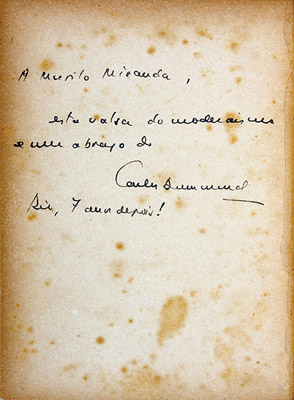 A Murilo Miranda,
esta valsa do modernismo
e um abraço do
Carlos Drummond
Rio, 7 anos depois!